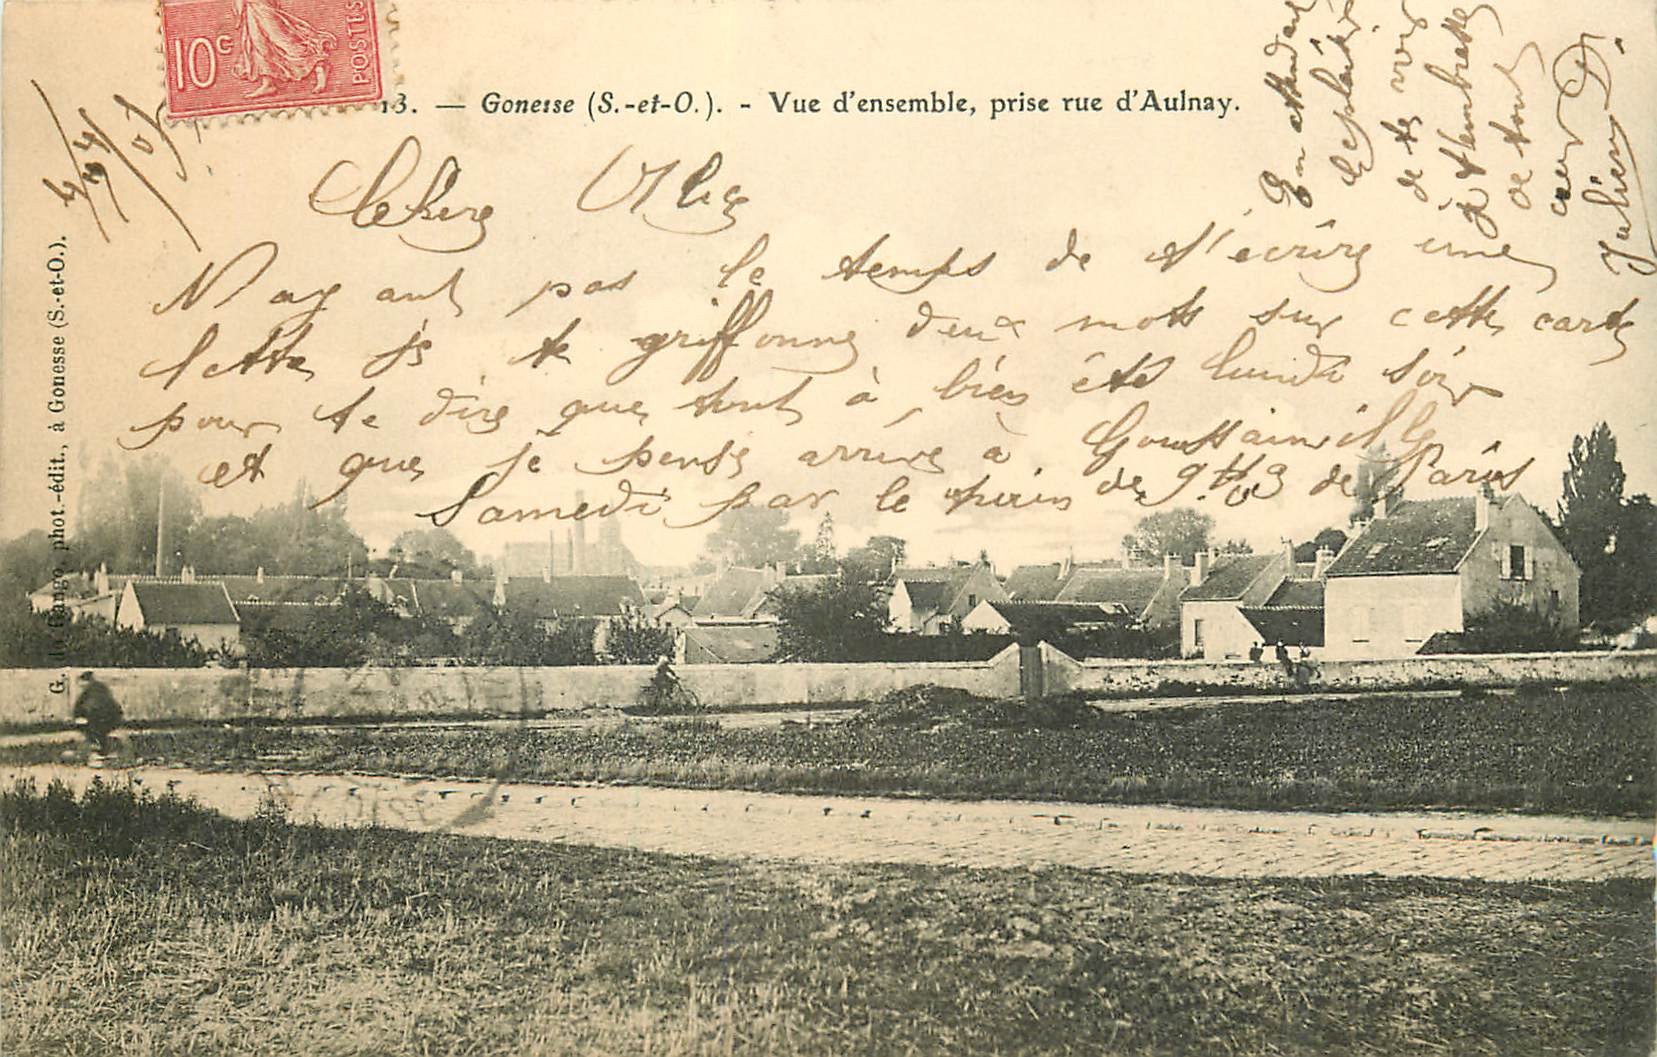 10c
POSTES
13. — Gonesse (S.-et-O.). - Vue d'ensemble, prise rue d'Aulnay.
G. le Gango phot.-édit., à Gonesse (S.-et-O.).
N'ayant pas le temps de t'écrire une
lettre je te griffonne deux mots sur cette carte
pour te dire que tout à bien été lundi soir
et que je pense arrivé à Goussainville
Samedi par le de 9h 03 de Paris
En attendant
le plaisir
de te voir
je t'embrasse
de tout
cœur
Julien